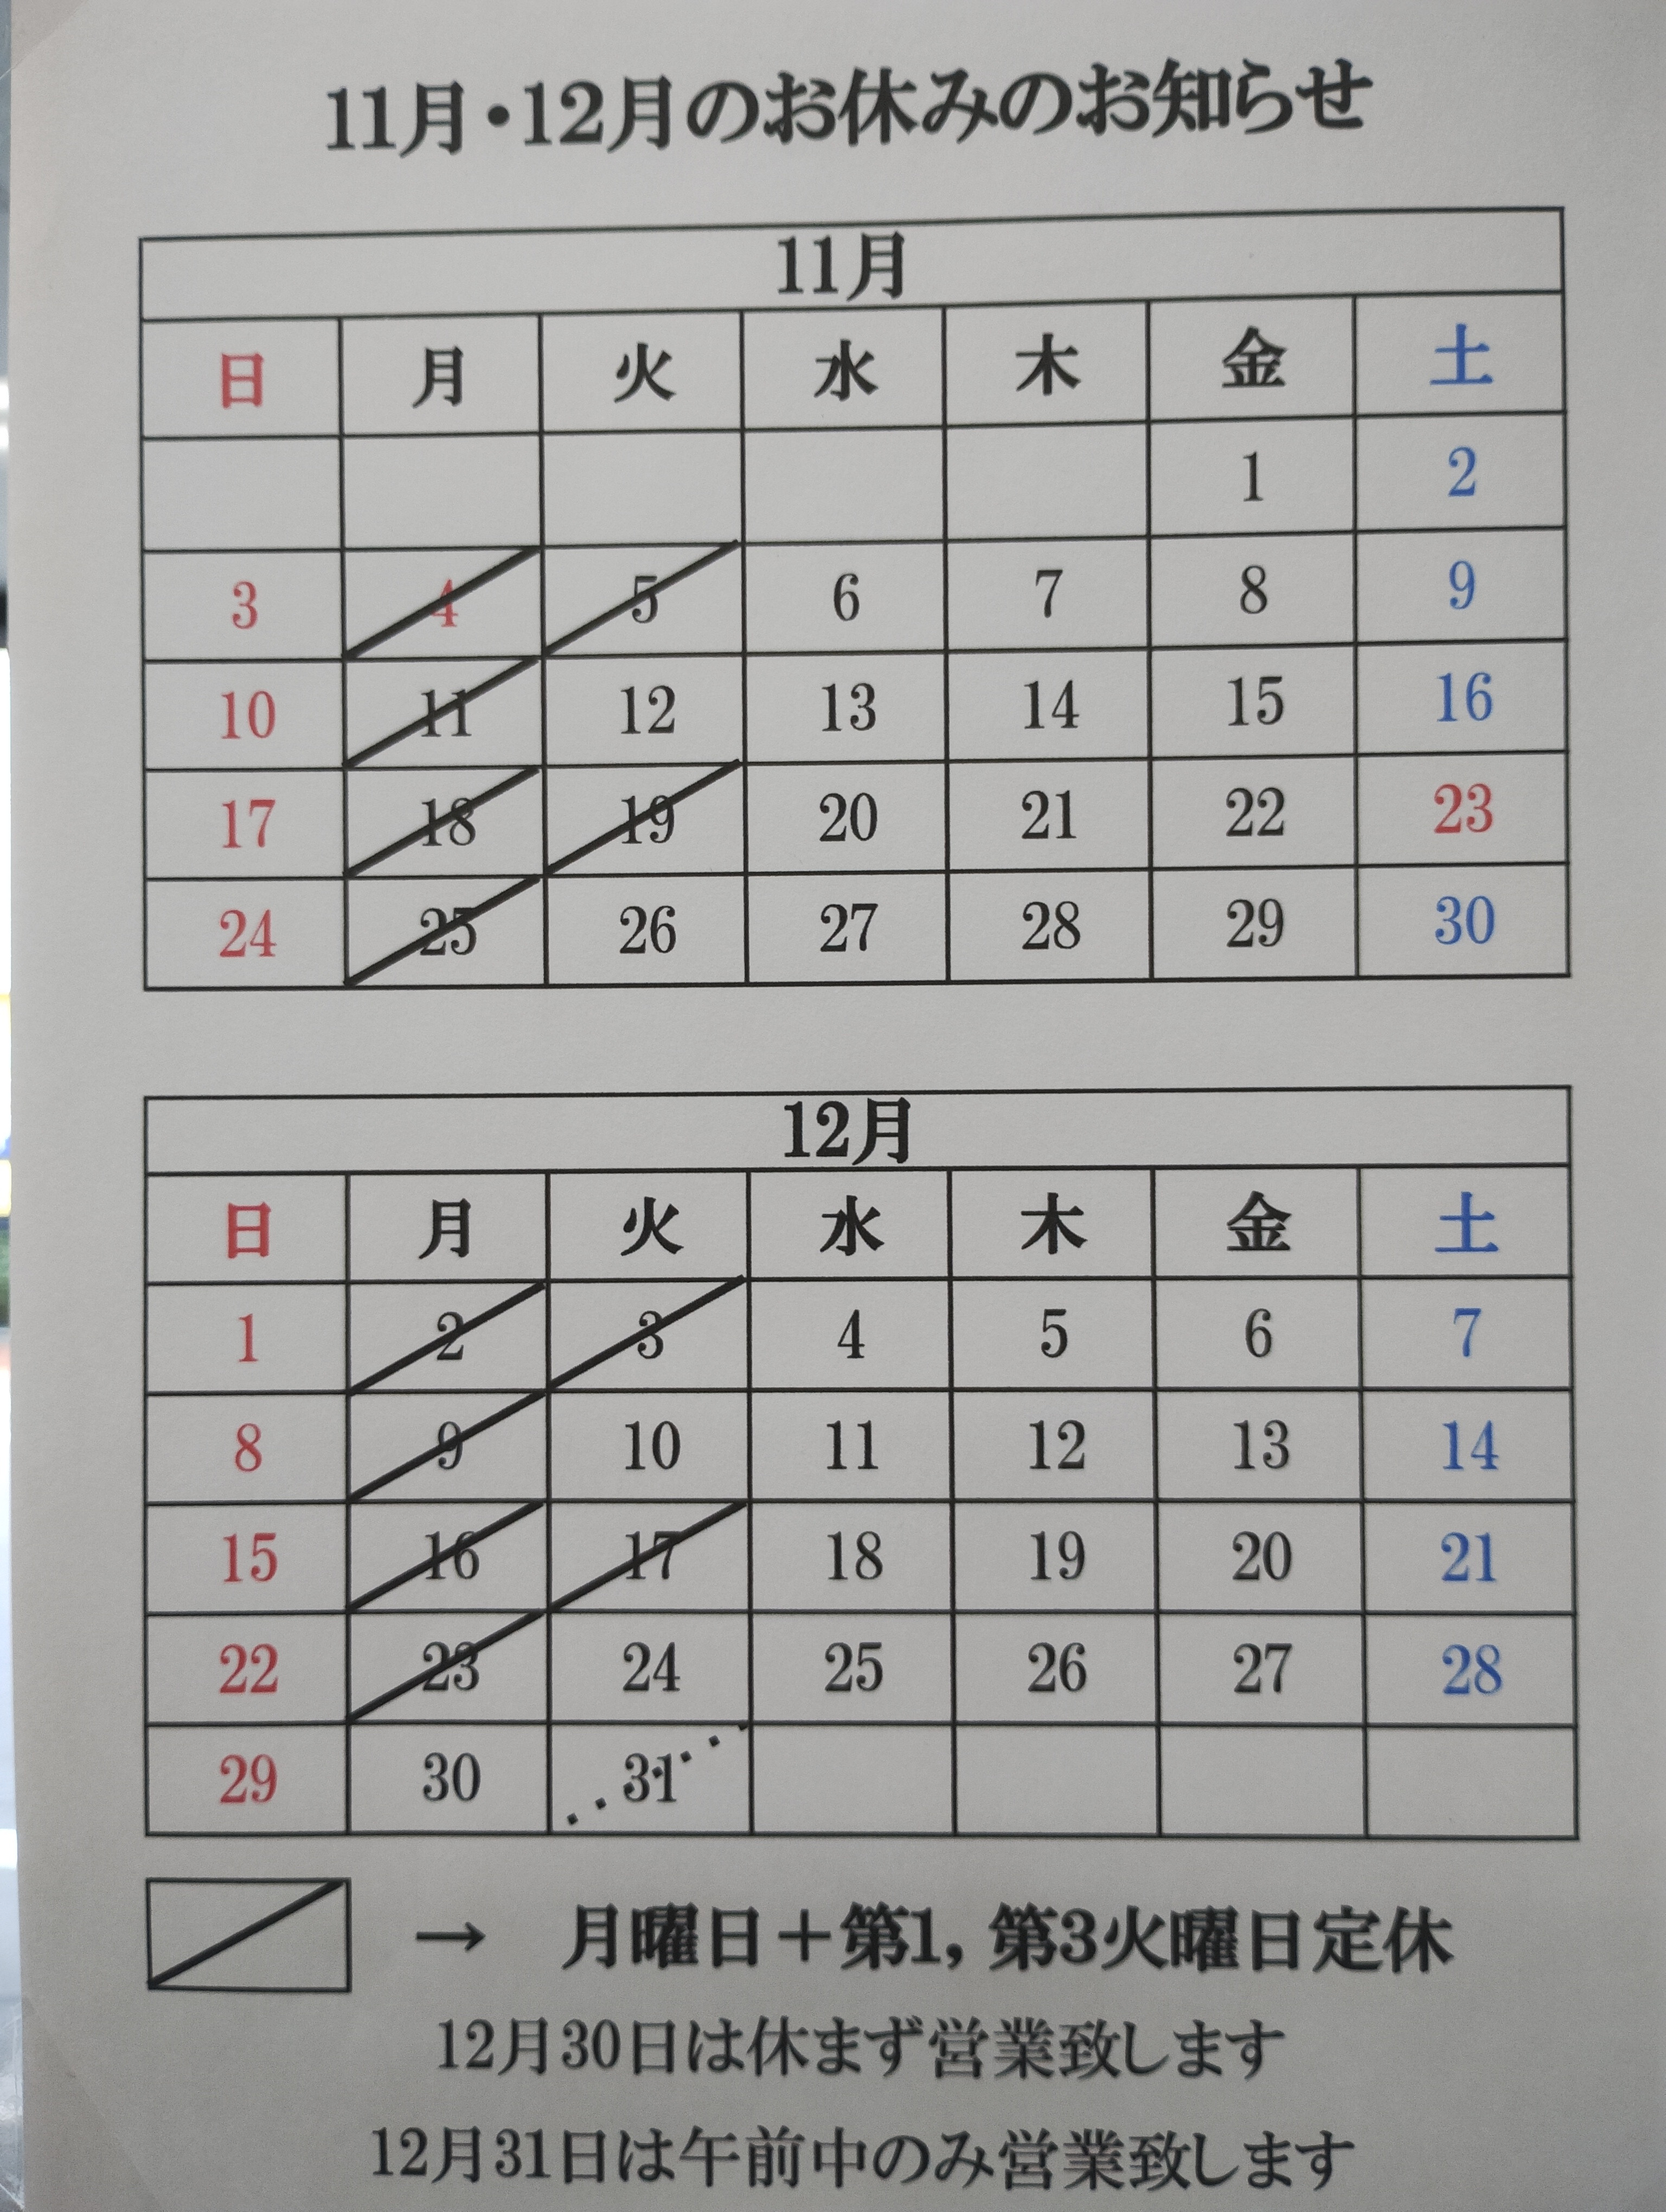 11月・12月のお休みのお知らせ
11月
日 月 火 水 木 金 土
1 2
3 4 5 6 7 8 9
10 11 12 13 14 15 16
17 18 19 20 21 22 23
24 25 26 27 28 29 30
12月
日 月 火 水 木 金 土
1 2 3 4 5 6 7
8 9 10 11 12 13 14
15 16 17 18 19 20 21
22 23 24 25 26 27 28
29 30 31
→ 月曜日＋第1, 第3火曜日定休
12月30日は休まず営業致します
12月31日は午前中のみ営業致します